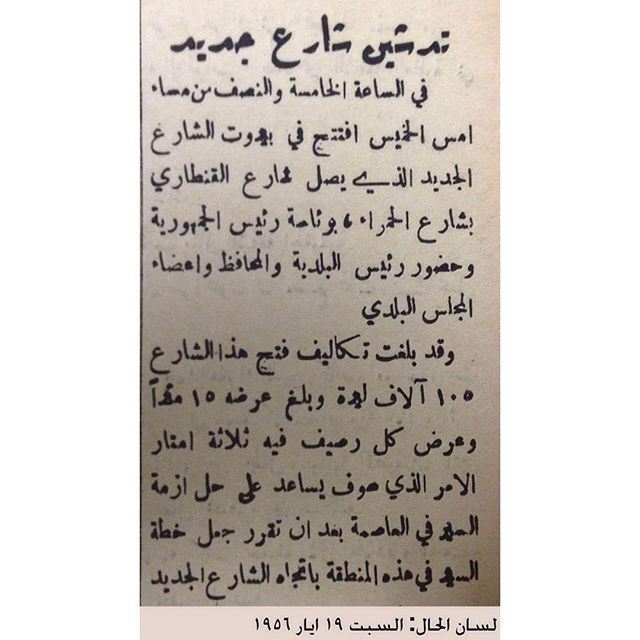 تدشين شارع جديد
في الساعة الخامسة والنصف من مساء
امس الخميس افتتح في بيروت الشارع
الجديد الذي يصل شارع القنطاري
بشارع الحمراء ، برئاسة رئيس الجمهورية
وحضور رئيس البلدية والمحافظ واعضاء
المجلس البلدي
وقد بلغت تكاليف فتح هذا الشارع
١٠٥ آلاف ليرة وبلغ عرضه ١٥ متراً
وعرض كل رصيف فيه ثلاثة امتار
الامر الذي سوف يساعد على حل ازمة
السير في العاصمة بعد ان تقرر جعل خطة
السير في هذه المنطقة باتجاه الشارع الجديد
لسان الحال: السبت ١٩ ايار ١٩٥٦